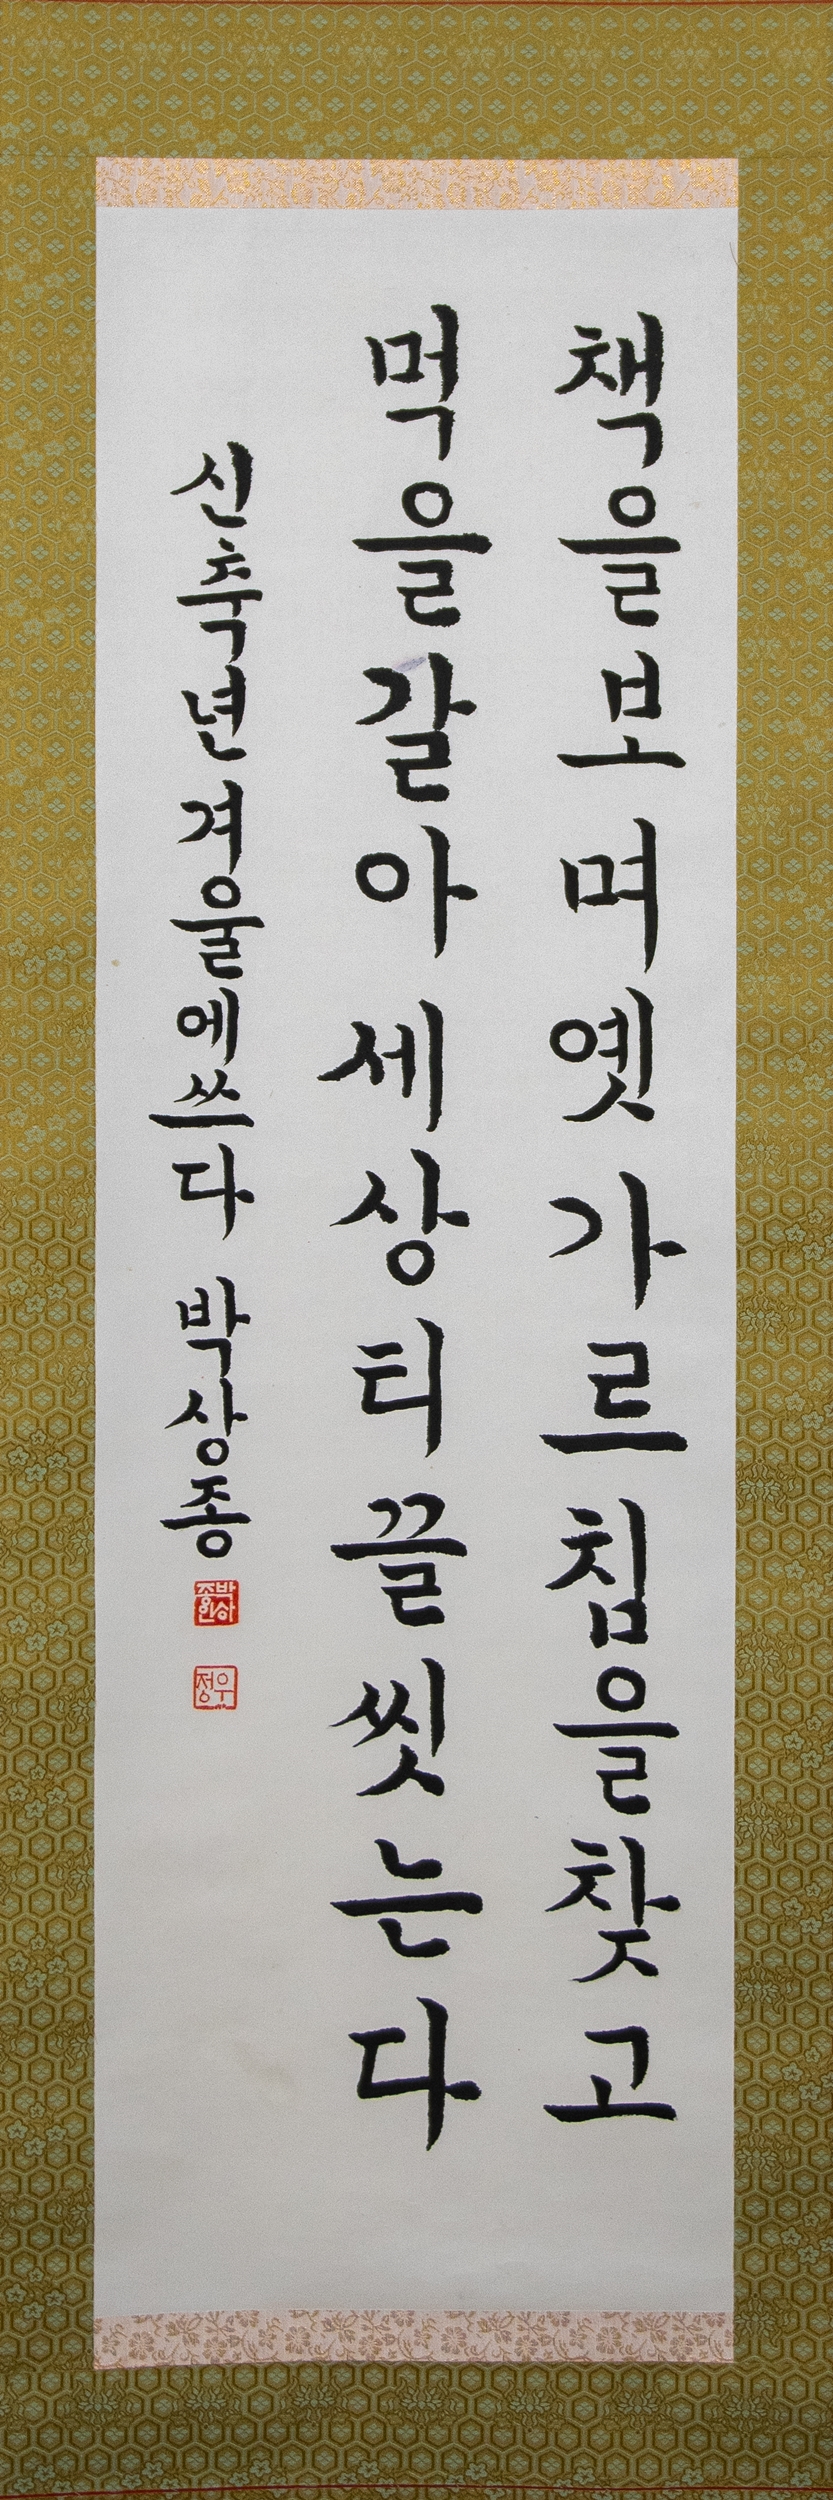 책을보며옛가르침을찾고
먹을갈아세상티끌씻는다
신축년겨울에쓰다 박상종
박상종인
우정